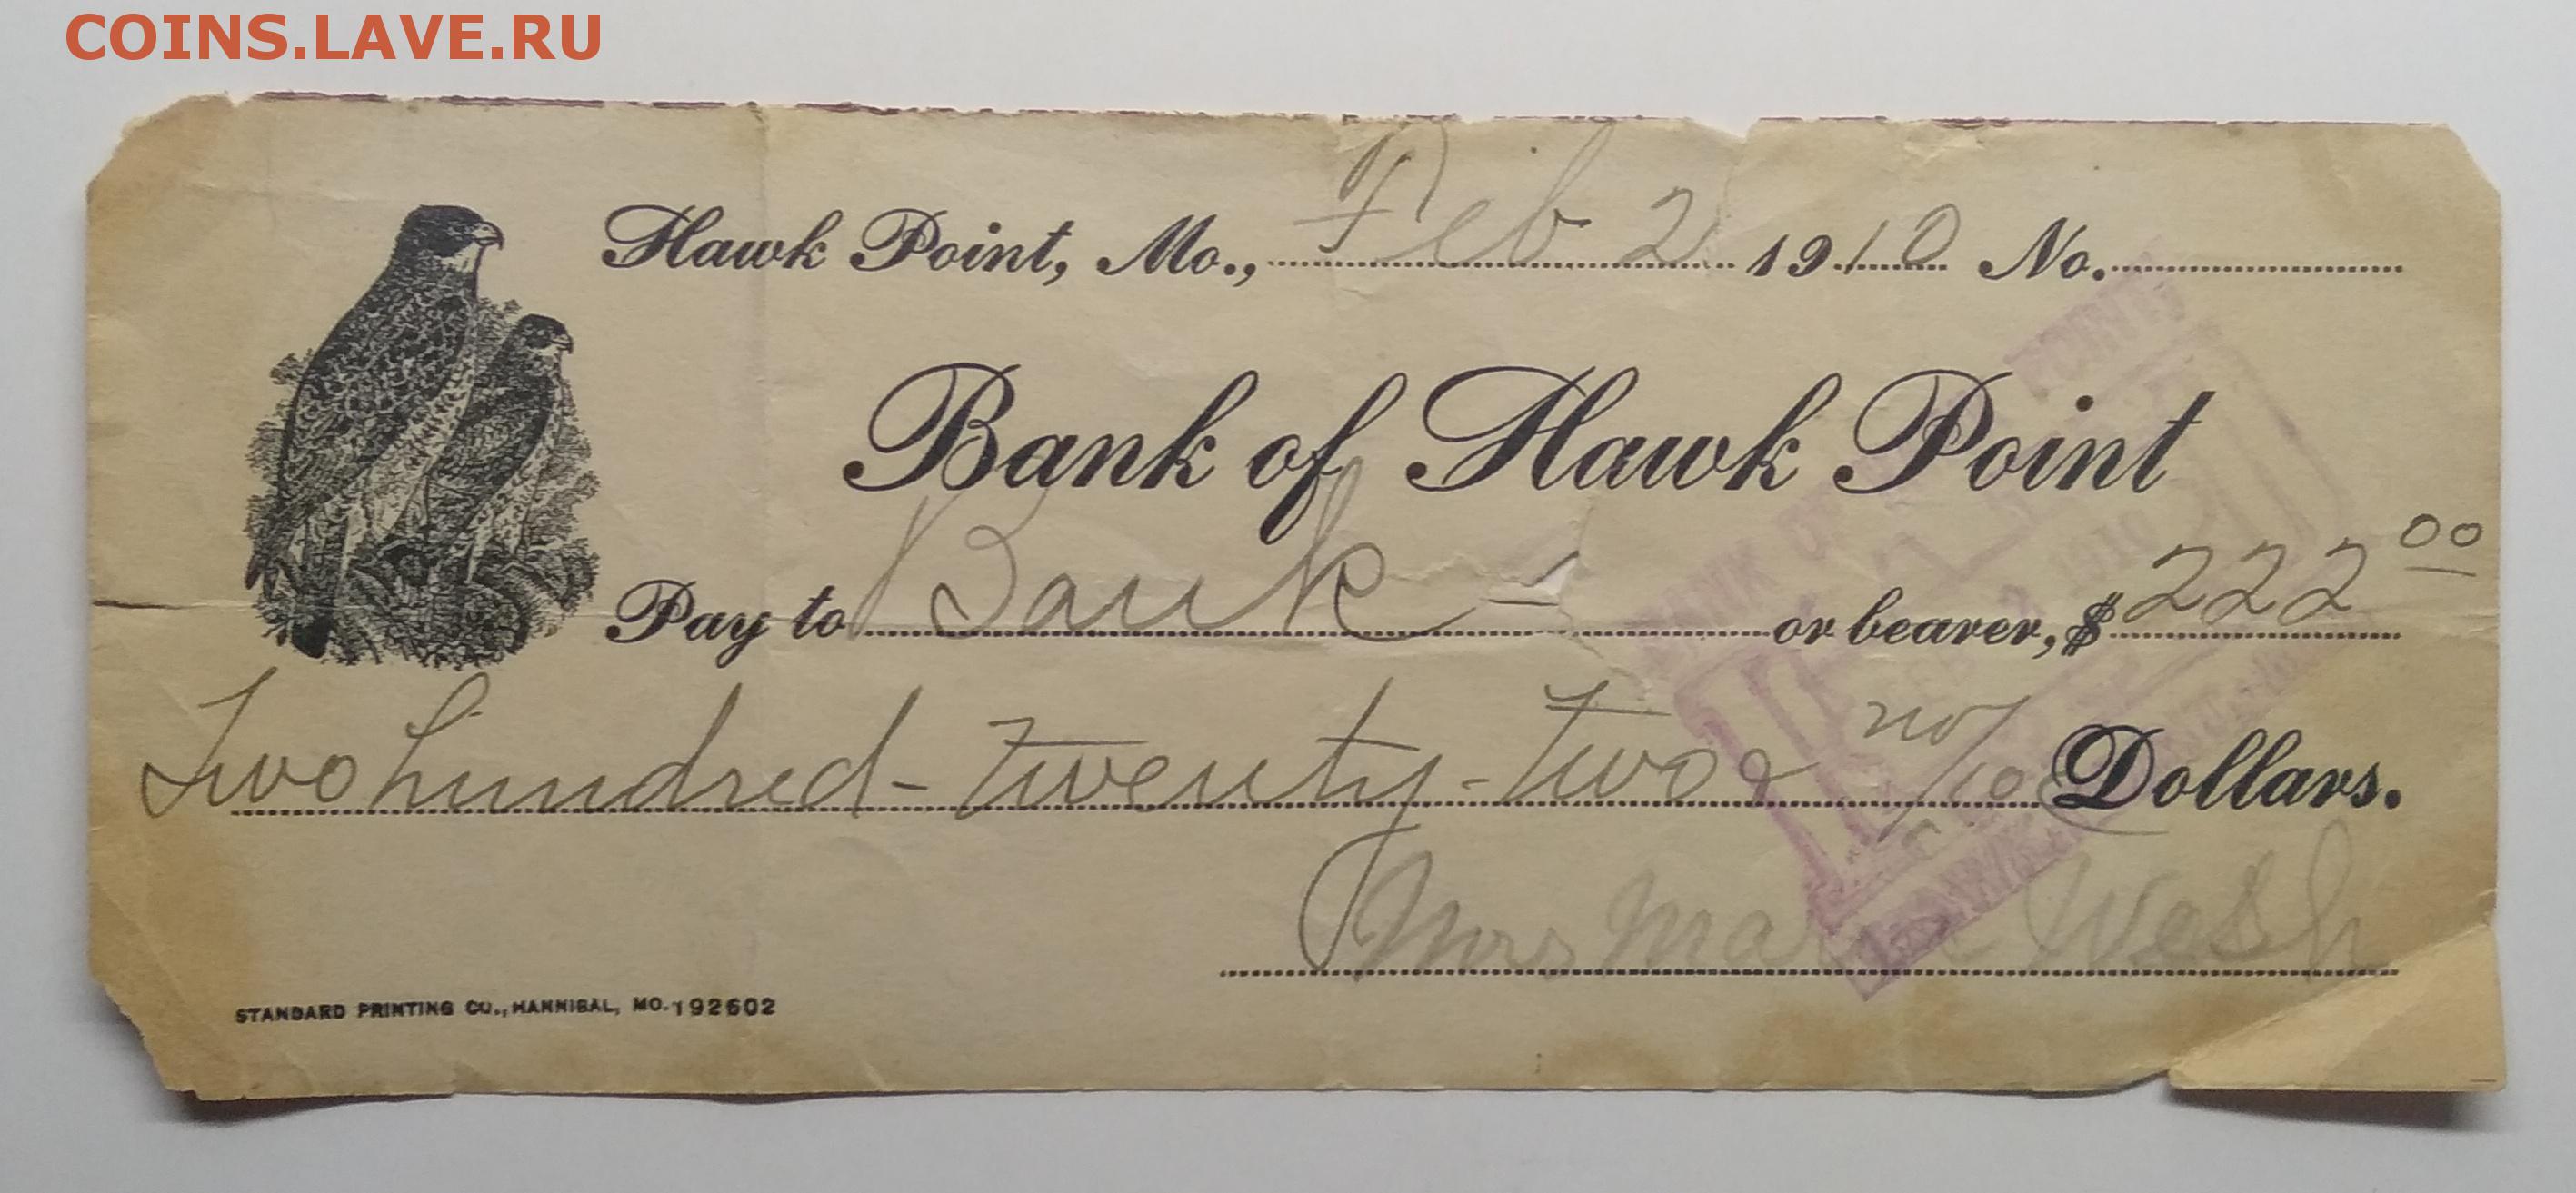 COINS.LAVE.RU
Hawk Point, Mo., Feb 2 1910 No.
Bank of Hawk Point
Pay to Bank or bearer, $ 222 00
Two hundred - twenty - two & no/100 Dollars.
Mrs
STANDARD PRINTING CO., HANNIBAL, MO. 192602
BANK OF POINT
PAID